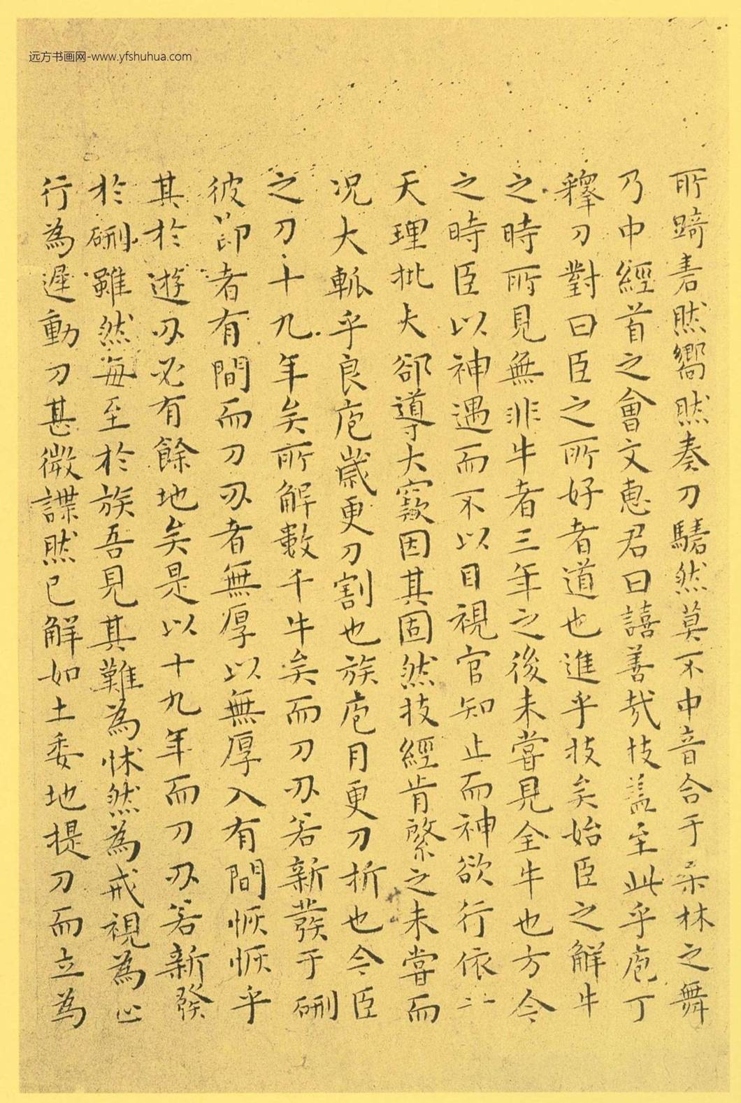 远方书画网-www.yfshuhua.com
所踦砉然嚮然奏刀騞然莫不中音合于桑林之舞
乃中經首之會文惠君曰譆善哉技蓋至此乎庖丁
釋刀對曰臣之所好者道也進乎技矣始臣之解牛
之時所見無非牛者三年之後未嘗見全牛也方今
之時臣以神遇而不以目視官知止而神欲行依
天理批大郤導大窾因其固然技經肯綮之未嘗而
况大軱乎良庖歲更刀割也族庖月更刀折也今臣
之刀十九年矣所解數千牛矣而刀刃若新發于硎
彼節者有間而刀刃者無厚以無厚入有間恢恢乎
其於遊刃必有餘地矣是以十九年而刀刃若新發
於硎雖然每至於族吾見其難為怵然為戒視為止
行為遲動刀甚微謋然已解如土委地提刀而立為